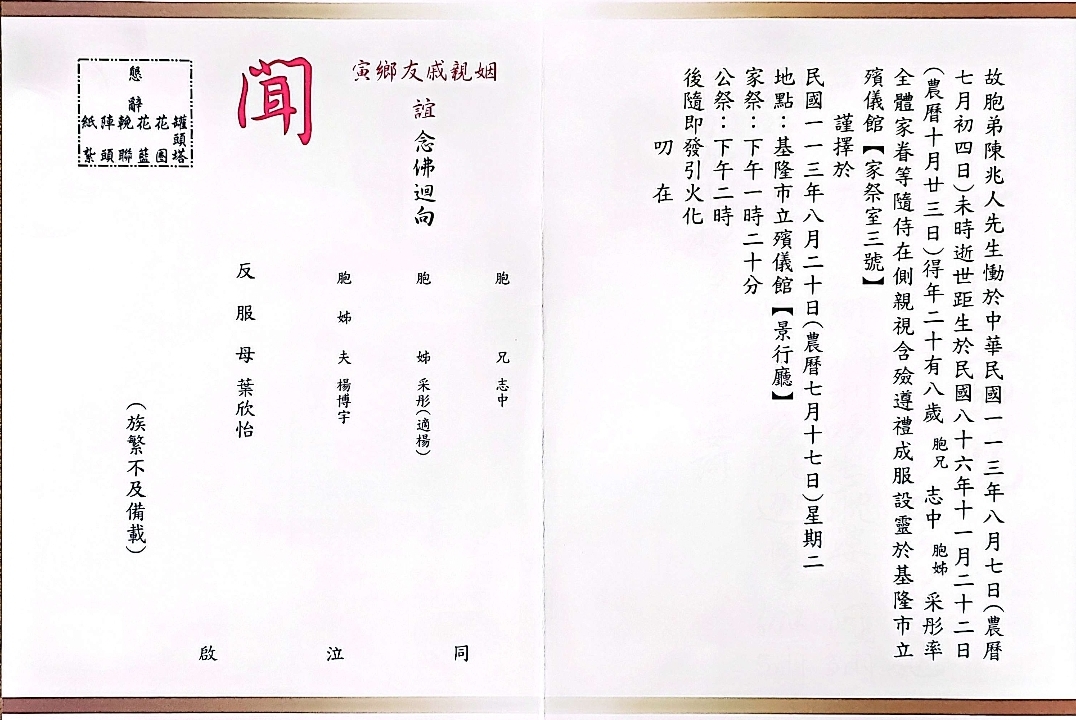 故胞弟陳兆人先生慟於中華民國一一三年八月七日(農曆
七月初四日)未時逝世距生於民國八十六年十一月二十二日
(農曆十月廿三日)得年二十有八歲 胞兄 志中 胞姊 采彤率
全體家眷等隨侍在側親視含殮遵禮成服設靈於基隆市立
殯儀館【家祭室三號】
謹擇於
民國一一三年八月二十日(農曆七月十七日)星期二
地點:基隆市立殯儀館【景行廳】
家祭:下午一時二十分
公祭:下午二時
後隨即發引火化
叨 在
姻親戚友鄉寅
誼 念佛迴向
聞
懇 辭
罐頭塔
花圈
花籃
輓聯
陣頭
紙紮
胞 兄 志中
胞 姊 采彤(適楊)
胞 姊 夫 楊博宇
反 服 母 葉欣怡
(族繁不及備載)
同 泣 啟